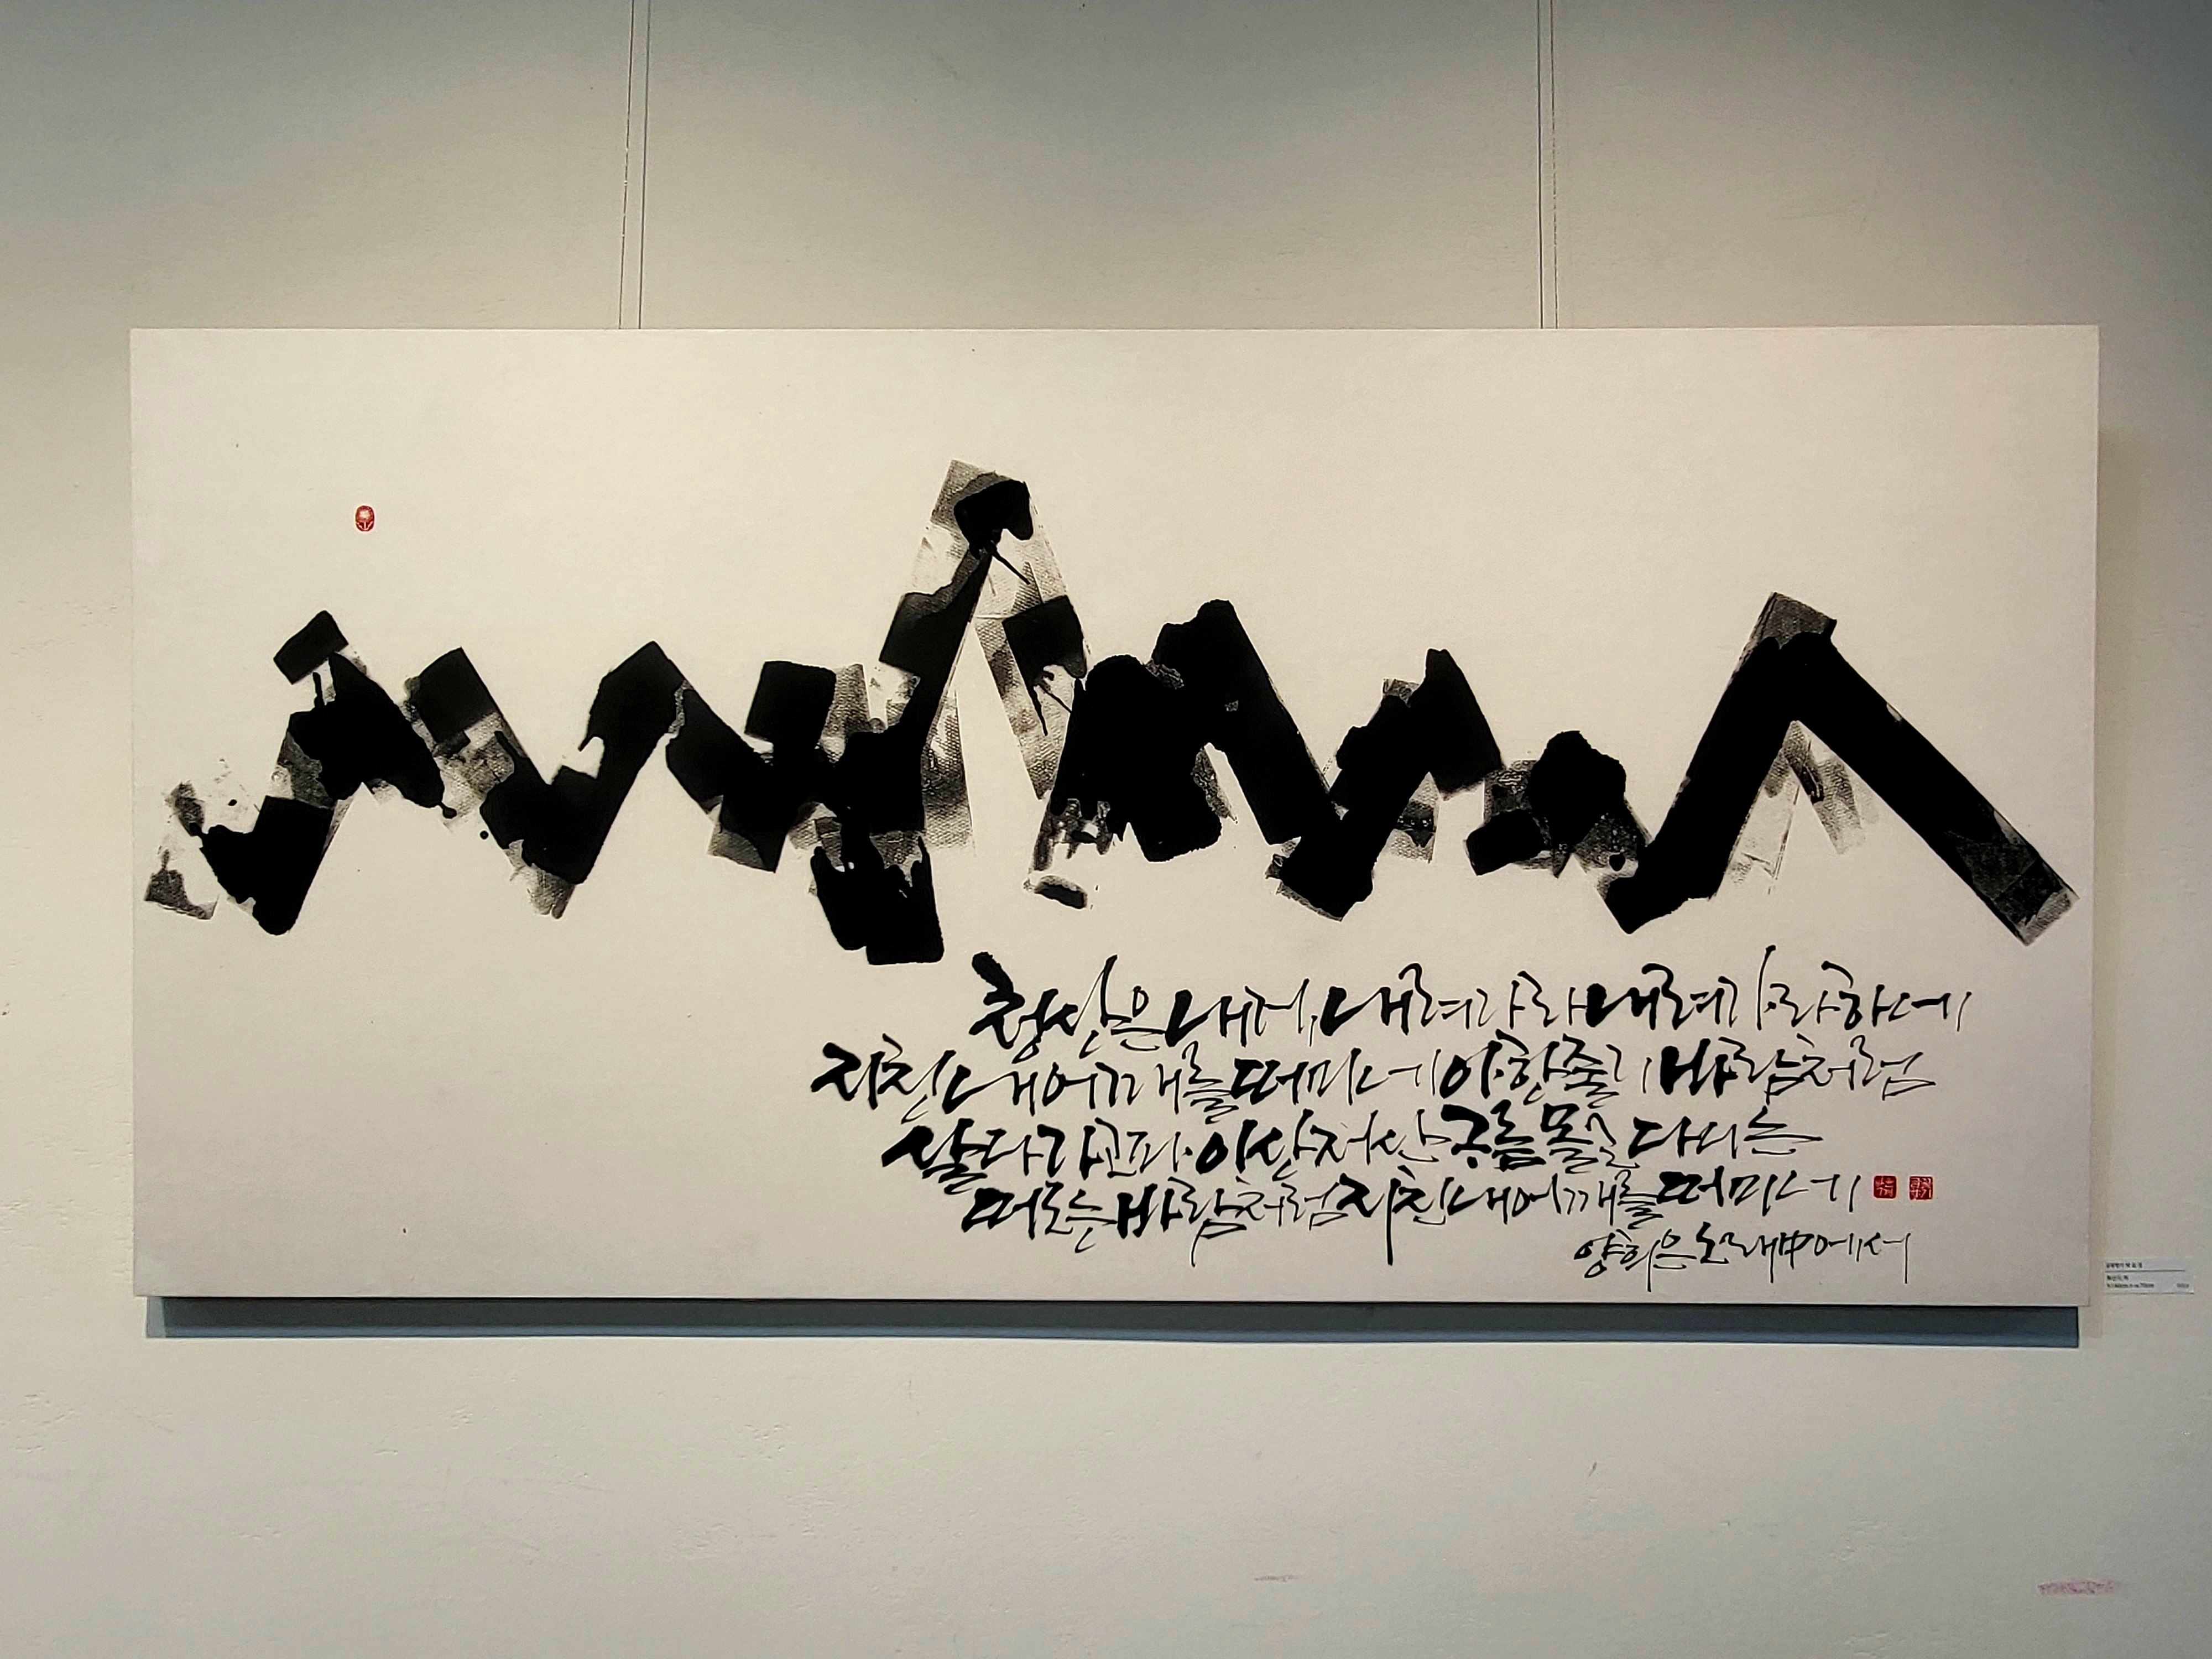 청산은 내게, 내려가라 내려가라 하네
지친 내 어깨를 떠미네 아 한줄기 바람처럼
살다가고파 이산 저산 구름몰고 다니는
떠도는 바람처럼 지친 내 어깨를 떠미네
양희은 노래中에서